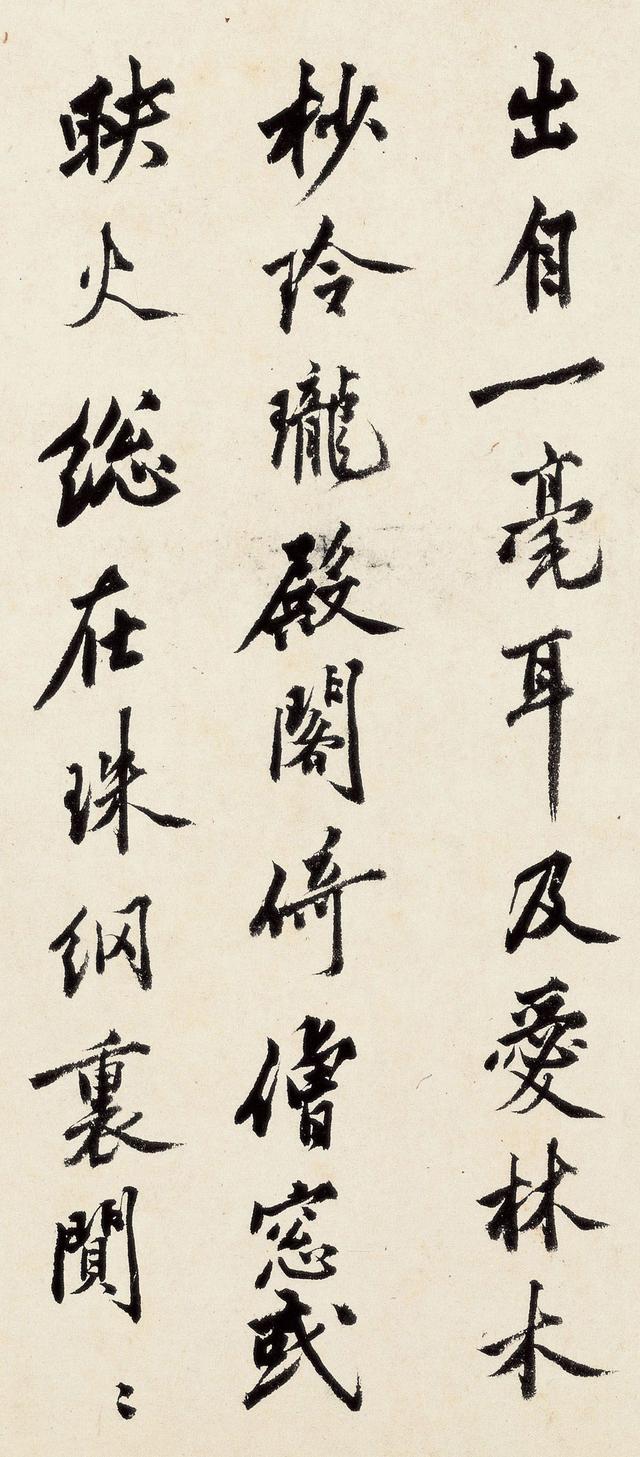 出自一毫耳及愛林木
杪玲瓏殿閣倚僧窓或
映火総在珠網裏間〻